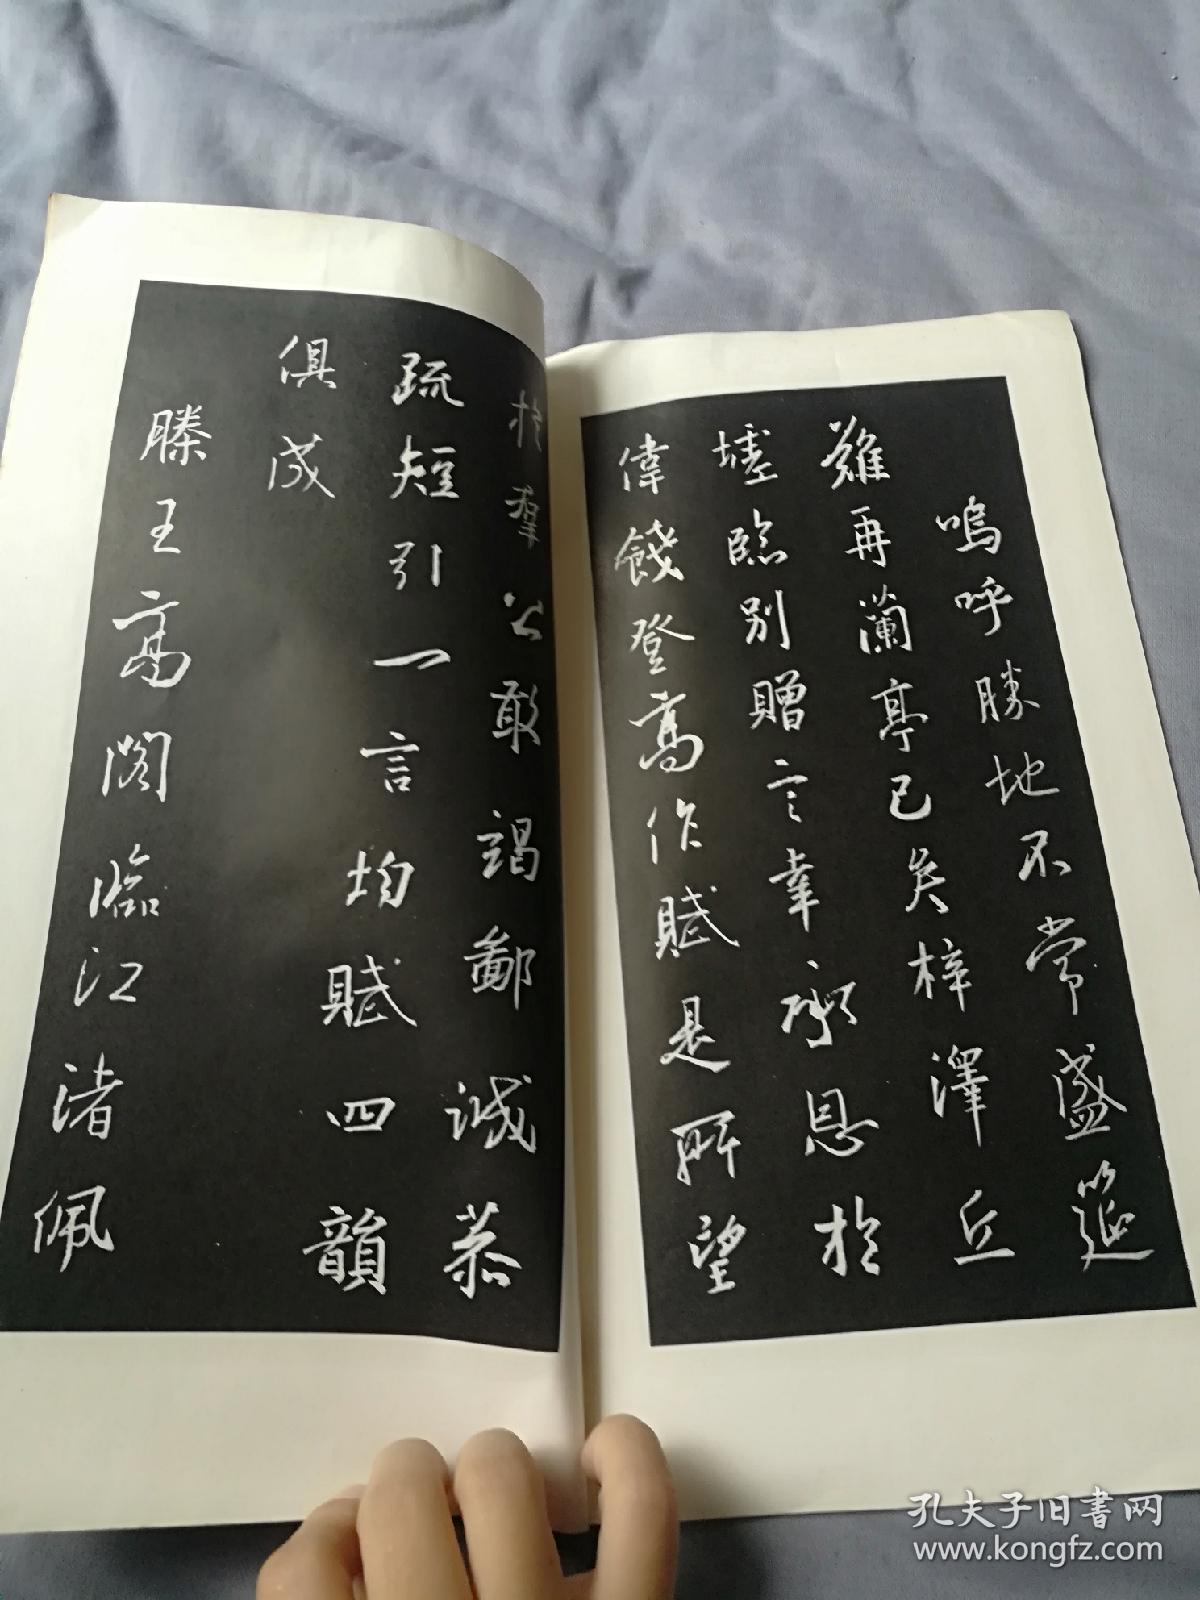 嗚呼勝地不常盛筵
難再蘭亭已矣梓澤丘
墟臨別贈言幸承恩於
偉餞登高作賦是所望
於羣公敢竭鄙誠恭
疏短引一言均賦四韻
俱成
滕王高閣臨江渚佩
孔夫子旧书网
www.kongfz.com